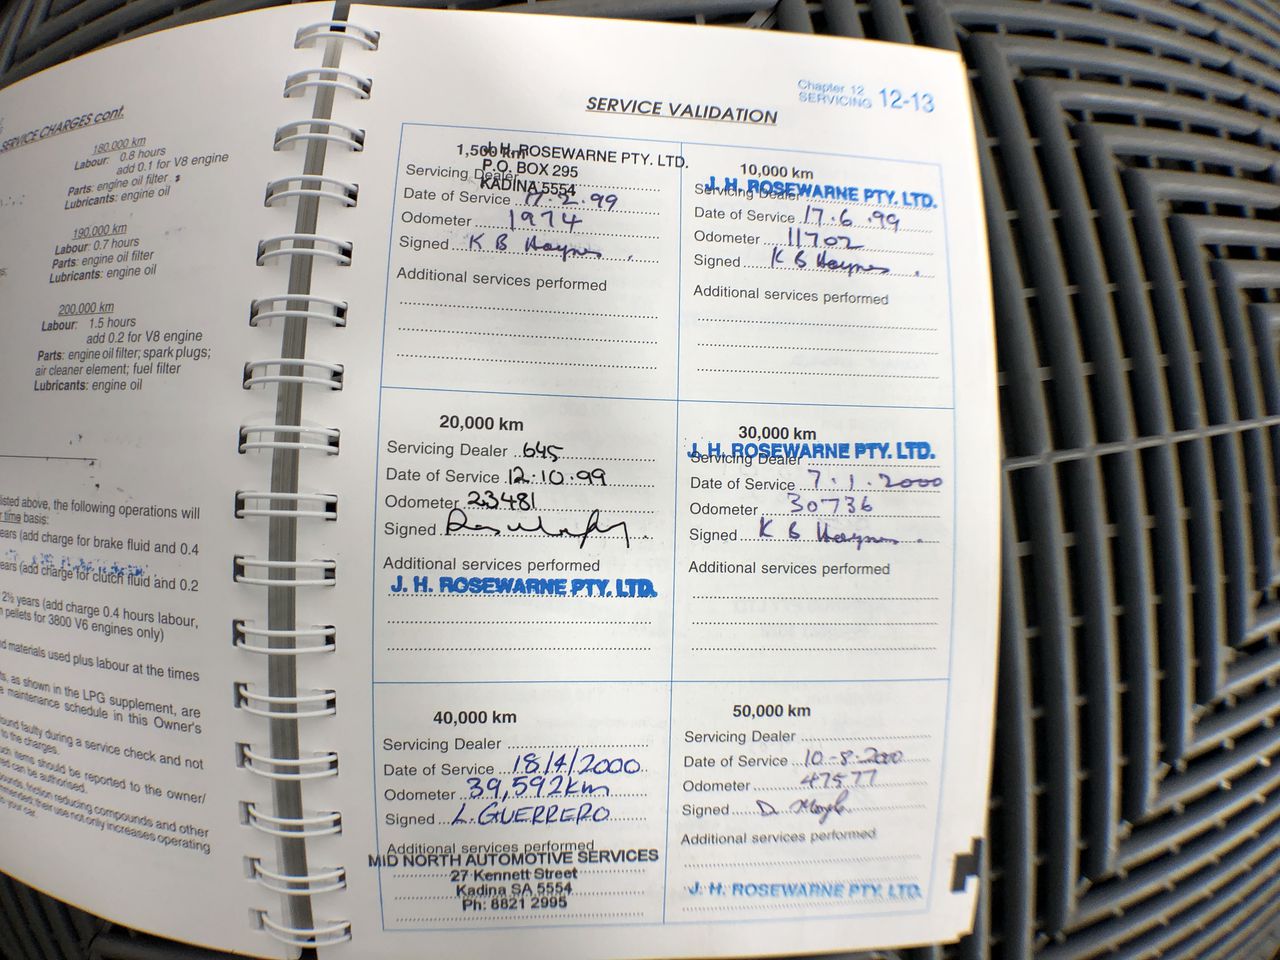 SERVICE CHARGES cont.
180,000 km
Labour: 0.8 hours
add 0.1 for V8 engine
Parts: engine oil filter
Lubricants: engine oil
190,000 km
Labour: 0.7 hours
Parts: engine oil filter
Lubricants: engine oil
200,000 km
Labour: 1.5 hours
add 0.2 for V8 engine
Parts: engine oil filter; spark plugs;
air cleaner element; fuel filter
Lubricants: engine oil
listed above, the following operations will
time basis:
ears (add charge for brake fluid and 0.4
ears (add charge for clutch fluid and 0.2
2½ years (add charge 0.4 hours labour,
pellets for 3800 V6 engines only)
materials used plus labour at the times
as shown in the LPG supplement, are
maintenance schedule in this Owner's
found faulty during a service check and not
to the charges.
such items should be reported to the owner/
can be authorised.
friction reducing compounds and other
their use not only increases operating
your car.
Chapter 12
SERVICING 12-13
SERVICE VALIDATION
1,500 km
J. H. ROSEWARNE PTY. LTD.
P.O. BOX 295
KADINA 5554
Servicing Dealer
Date of Service 17.2.99
Odometer 1974
Signed K B Haynes
Additional services performed
10,000 km
J. H. ROSEWARNE PTY. LTD.
Servicing Dealer
Date of Service 17.6.99
Odometer 11702
Signed K B Haynes
Additional services performed
20,000 km
Servicing Dealer 645
Date of Service 12.10.99
Odometer 23481
Signed
Additional services performed
J. H. ROSEWARNE PTY. LTD.
30,000 km
J. H. ROSEWARNE PTY. LTD.
Servicing Dealer
Date of Service 7.1.2000
Odometer 30736
Signed K B Haynes
Additional services performed
40,000 km
Servicing Dealer
Date of Service 18/4/2000
Odometer 39,592km
Signed L.GUERRERO
Additional services performed
MID NORTH AUTOMOTIVE SERVICES
27 Kennett Street
Kadina SA 5554
Ph: 8821 2995
50,000 km
Servicing Dealer
Date of Service 10-8-2000
Odometer 47577
Signed D
Additional services performed
J. H. ROSEWARNE PTY. LTD.